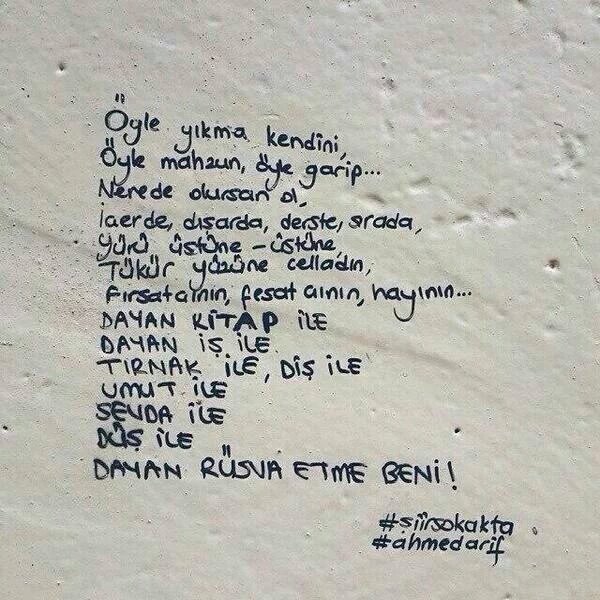 Öyle yıkma kendini,
Öyle mahzun, öyle garip...
Nerede olursan ol,
İçerde, dışarda, derste, sırada,
Yürü üstüne - üstüne,
Tükür yüzüne celladın,
Fırsatçının, fesatçının, hayının...
DAYAN KİTAP İLE
DAYAN İŞ İLE
TIRNAK İLE, DİŞ İLE
UMUT İLE
SEVDA İLE
DÜŞ İLE
DAYAN RÜSVA ETME BENİ!
#şiirsokakta
#ahmedarif